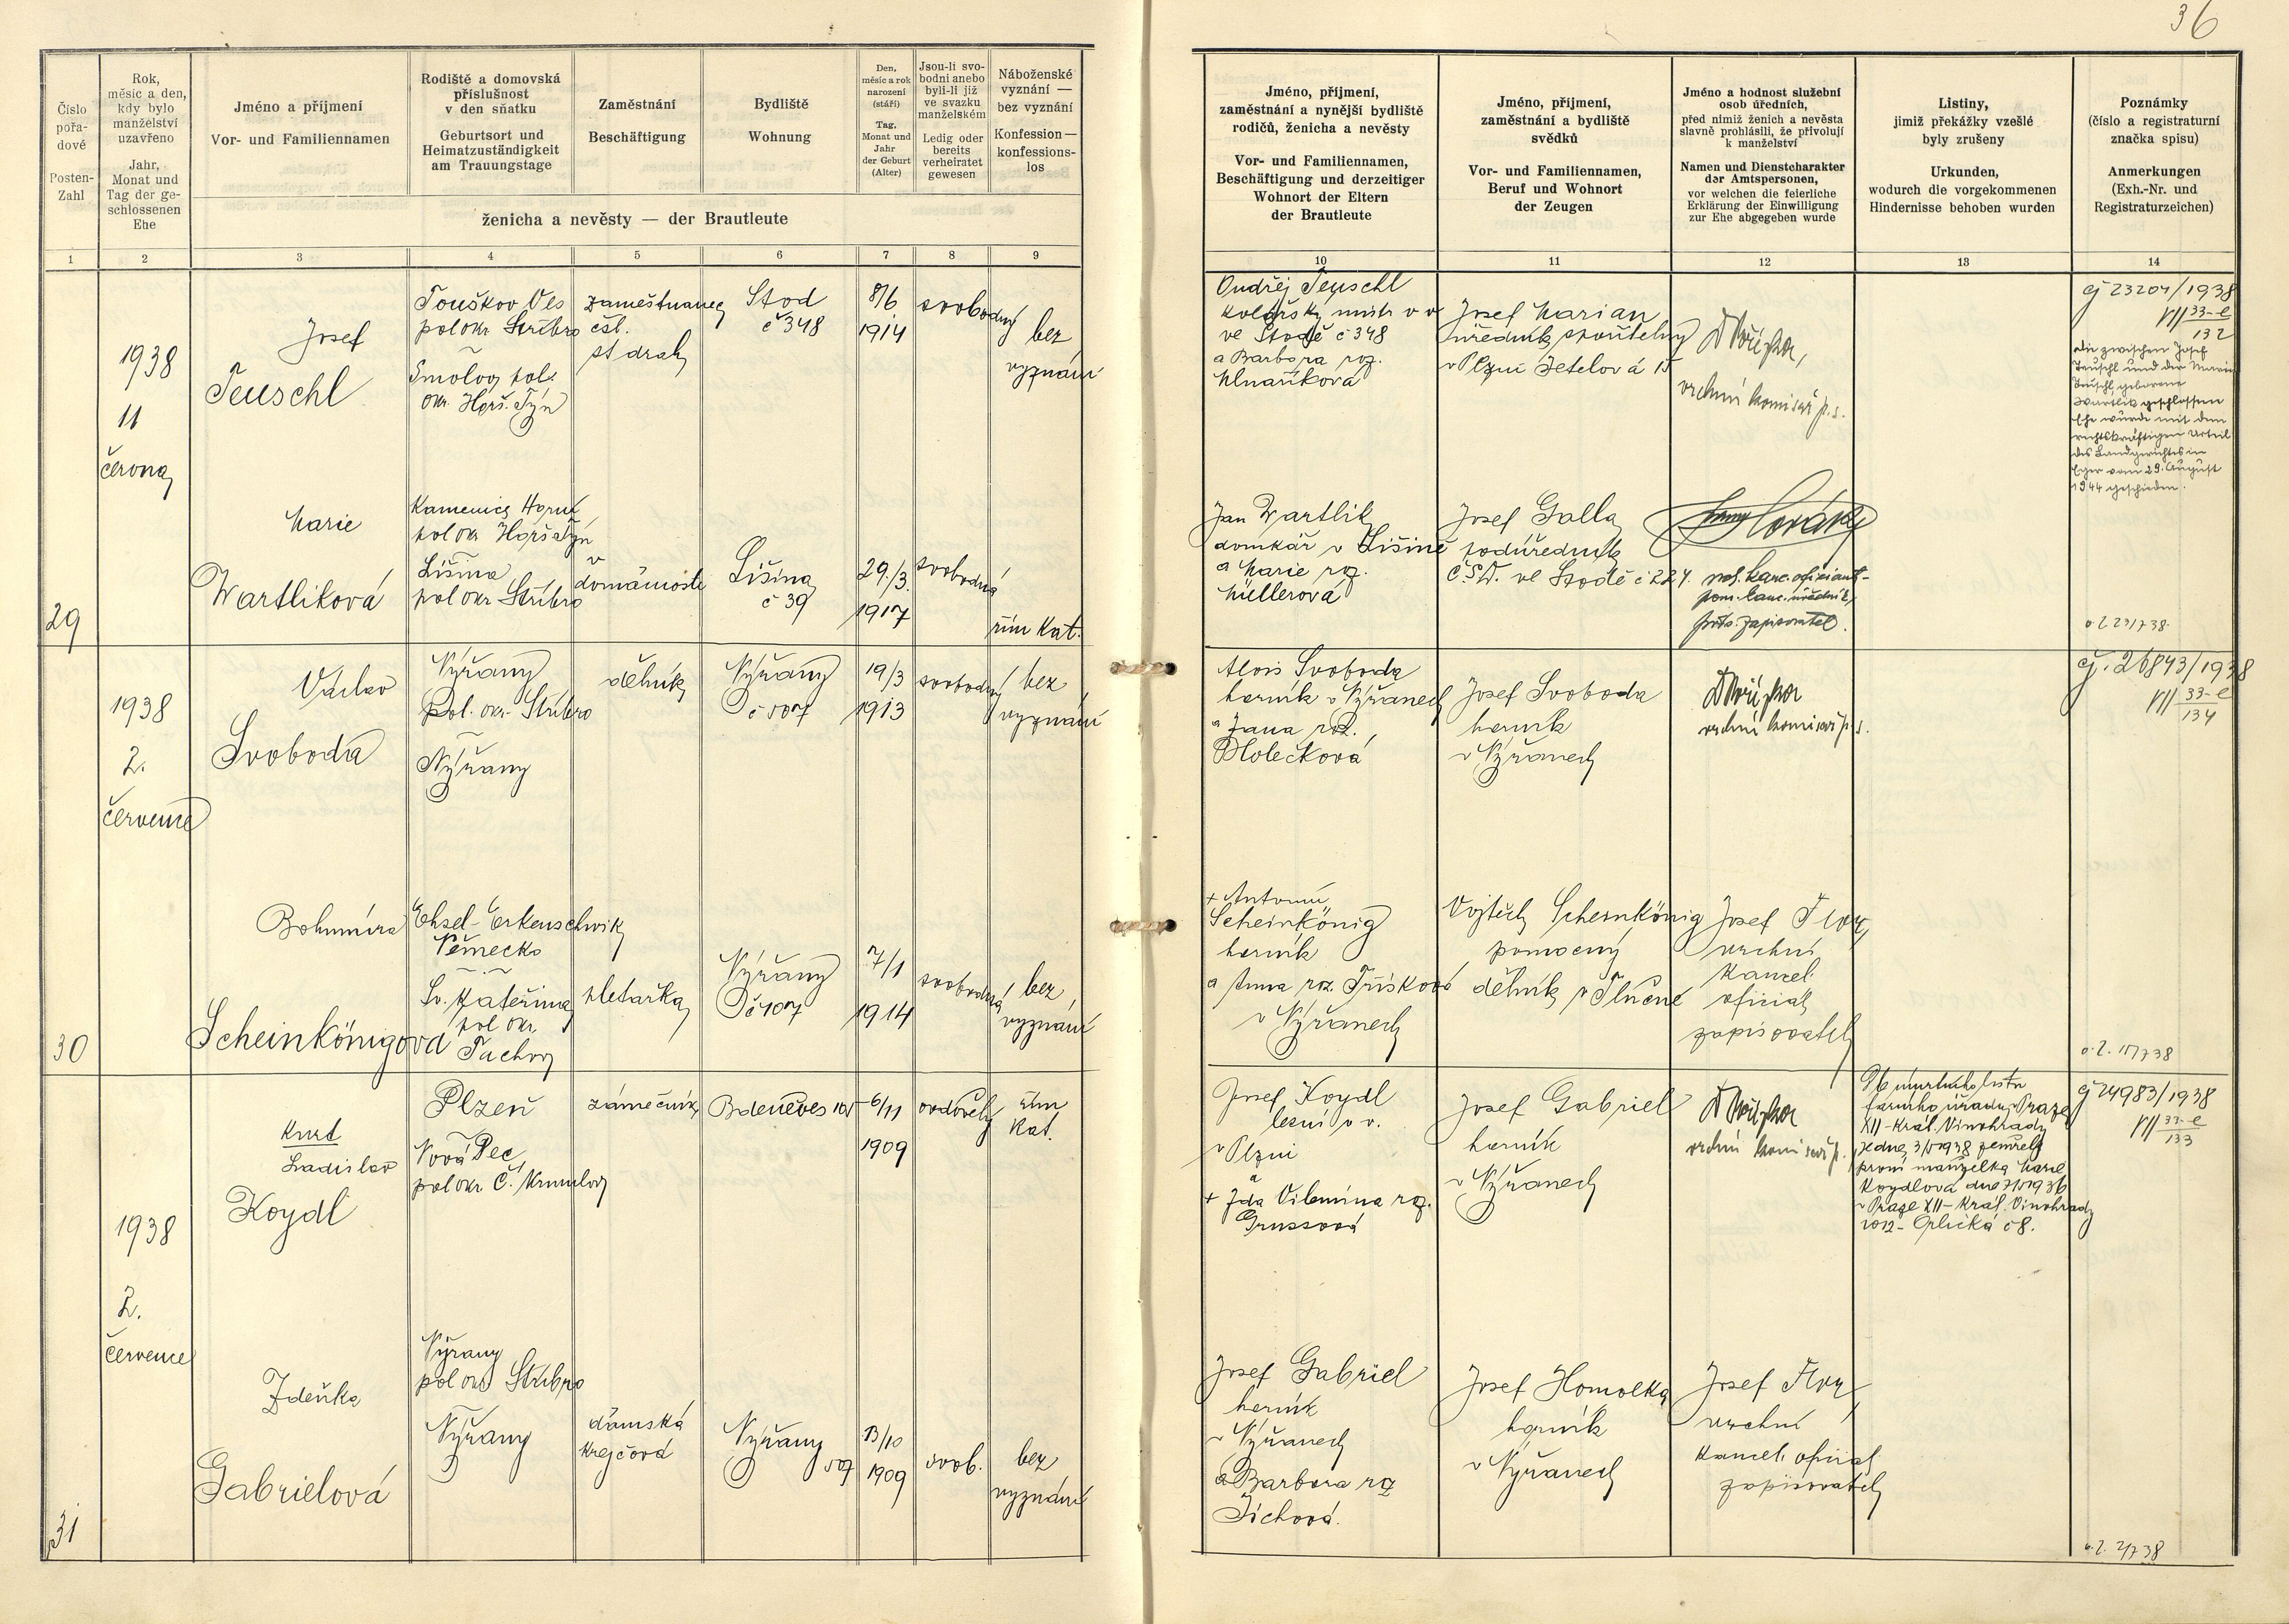 36
Číslo
pořa-
dové
Posten-
Zahl
Rok,
měsíc a den,
kdy bylo
manželství
uzavřeno
Jahr,
Monat und
Tag der ge-
schlossenen
Ehe
Jméno a příjmení
Vor- und Familiennamen
Rodiště a domovská
příslušnost
v den sňatku
Geburtsort und
Heimatzuständigkeit
am Trauungstage
Zaměstnání
Beschäftigung
Bydliště
Wohnung
Den,
měsíc a rok
narození
(stáří)
Tag,
Monat und
Jahr
der Geburt
(Alter)
Jsou-li svo-
bodni anebo
byli-li již
ve svazku
manželském
Ledig oder
bereits
verheiratet
gewesen
Náboženské
vyznání —
bez vyznání
Konfession —
konfessions-
los
ženicha a nevěsty — der Brautleute
Jméno, příjmení,
zaměstnání a nynější bydliště
rodičů, ženicha a nevěsty
Vor- und Familiennamen,
Beschäftigung und derzeitiger
Wohnort der Eltern
der Brautleute
Jméno, příjmení,
zaměstnání a bydliště
svědků
Vor- und Familiennamen,
Beruf und Wohnort
der Zeugen
Jméno a hodnost služební
osob úředních,
před nimiž ženich a nevěsta
slavně prohlásili, že přivolují
k manželství
Namen und Dienstcharakter
der Amtspersonen,
vor welchen die feierliche
Erklärung der Einwilligung
zur Ehe abgegeben wurde
Listiny,
jimiž překážky vzešlé
byly zrušeny
Urkunden,
wodurch die vorgekommenen
Hindernisse behoben wurden
Poznámky
(číslo a registraturní
značka spisu)
Anmerkungen
(Exh.-Nr. und
Registraturzeichen)
1 2 3 4 5 6 7 8 9 10 11 12 13 14
29
1938
11
června
Josef
Teuschl
Touškov Ves
pol okr Stříbro
Smolov pol.
okr. Horš. Týn
zaměstnanec
čsl.
st drah
Stod
č 348
8/6
1914
svobodný
bez
vyznání
Ondřej Teuschl
kolářský mistr v v
ve Stodě č 348
a Barbora roz.
Mlnaříková
Josef Marian
úředník spořitelny
v Plzni Jetelová 15
vrchní komisař p. s.
čj 23204/1938
VII 33-e
132
Die zwischen Josef
Teuschl und der Marie
Teuschl geborene
Wartlik geschlossene
Ehe wurde mit dem
rechtskräftigen Urteil
des Landgerichtes in
Eger vom 29. August
1944 geschieden.
Marie
Wartliková
Kamenice Horní
pol okr Horš Týn
Lišina
pol okr Stříbro
v
domácnosti
Lišina
č 39
29./3.
1917
svobodná
řím kat.
Jan Wartlik
domkář v Lišině
a Marie roz.
Müllerová
Josef Galla
podúředník
Č.S.D. ve Stodě č 224.
zapisovatel.
30
1938
2.
července
Václav
Svoboda
Nýřany
pol. okr. Stříbro
Nýřany
dělník
Nýřany
č 507
19/3
1913
svobodný
bez
vyznání
Alois Svoboda
horník v Nýřanech
a Jana roz.
Holečková
Josef Svoboda
horník
v Nýřanech
vrchní komisař p. s.
čj. 26843/1938
VII 33-e
134
Bohumíra
Scheinkönigová
Erkenschwik
Německo
Sv. Kateřina
pol okr
Tachov
pletařka
Nýřany
7/1
1914
svobodná
bez
vyznání
+ Antonín
Scheinkönig
horník
a Anna roz Tříšková
v Nýřanech
Vojtěch Scheinkönig
pomocný
dělník v Tlučné
Josef
vrchní
kancel.
oficiál
zapisovatel
31
1938
2.
července
Kurt
Ladislav
Koydl
Plzeň
Nová Pec
pol okr Č. Krumlov
zámečník
6/11
1909
ovdovělý
řím
kat.
Josef Koydl
lesní v v.
v Plzni
a
+ Ida Vilemína roz.
Grussová
Josef Gabriel
horník
v Nýřanech
vrchní komisař p.
Dle úmrtního listu
farního úřadu Praze
XII - Král. Vinohrady
první manželka Marie
Koydlová
v Praze XII - Král. Vinohrady
čj 24983/1938
VII 33-e
133
Zdeňka
Gabrielová
Nýřany
pol okr Stříbro
Nýřany
dámská
krejčová
Nýřany
507
13/10
1909
svob.
bez
vyznání
Josef Gabriel
horník
v Nýřanech
a Barbora roz
Jíchová.
Josef Homolka
horník
v Nýřanech
Josef
vrchní
kancel. oficiál
zapisovatel